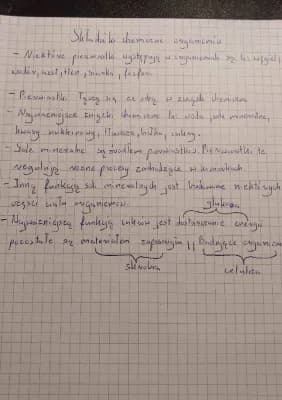 Składniki chemiczne organizmów
- Niektóre pierwiastki występują w organizmach są to: węgiel,
wodór, azot, tlen, siarka, fosfor.
- Pierwiastki łączą się ze sobą w związki chemiczne
- Najważniejsze związki chemiczne to: woda, sole mineralne,
kwasy nukleinowe, tłuszcze, białka, cukry.
- Sole mineralne są źródłem pierwiastków. Pierwiastki te
regulują ważne procesy zachodzące w komórkach.
- Inną funkcją soli mineralnych jest budowanie niektórych
części ciała organizmów.
glukoza
- Najważniejszą funkcją cukrów jest dostarczanie energii
pozostałe są materiałem zapasowym, budujące organizm
skrobia
celuloza